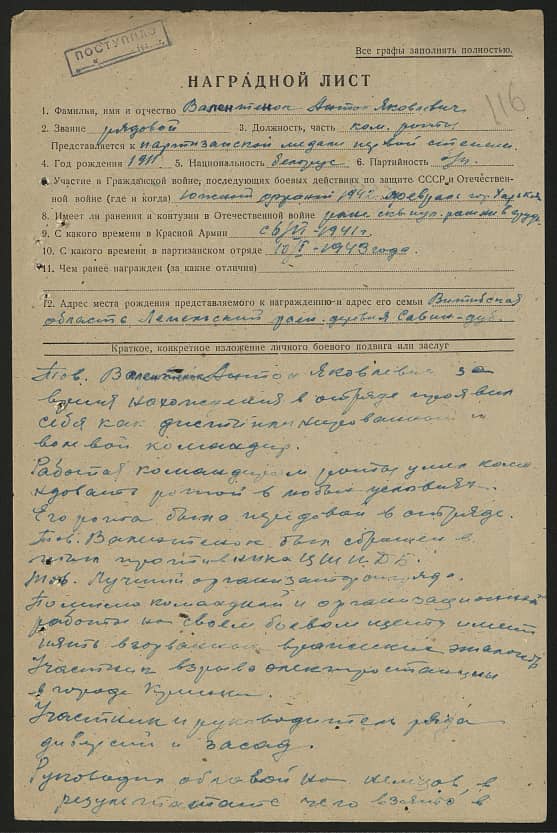 ПОСТУПИЛО
Все графы заполнять полностью.
116
НАГРАДНОЙ ЛИСТ
1. Фамилия, имя и отчество Валентенок Антон Яковлевич
2. Звание рядовой 3. Должность, часть ком. роты
Представляется к партизанской медали первой степени.
4. Год рождения 1911 5. Национальность белорус 6. Партийность б/п.
7. Участие в Гражданской войне, последующих боевых действиях по защите СССР и Отечествен-
ной войне (где и когда) Южный фронт 194 февраль гор. Харьков
8. Имеет ли ранения и контузии в Отечественной войне
9. С какого времени в Красной Армии с 6/VI-1941г.
10. С какого времени в партизанском отряде 10/I-1943 года.
11. Чем ранее награжден (за какие отличия)
12. Адрес места рождения представляемого к награждению и адрес его семьи Витебская
область Лепельский район деревня Савин-дуб.
Краткое, конкретное изложение личного боевого подвига или заслуг
Тов. Валентенок Антон Яковлевич за
время нахождения в отряде проявил
себя как дисциплинированный и
волевой командир.
Работая командиром роты умел кома-
ндовать ротой в любых условиях.
Его рота была передовой в отряде.
Тов. Валентенок был сброшен в
тыл противника ЦШПД Б.
Тов. Лучший организатор отряда.
Помимо командной и организационной
работы на своем боевом счету имеет
пять взорванных вражеских эшелонов
Участник взрыва электростанции
в городе Крупки.
Участник и руководитель ряда
диверсий и засад.
Руководил облавой на немцов, в
результате чего взято в